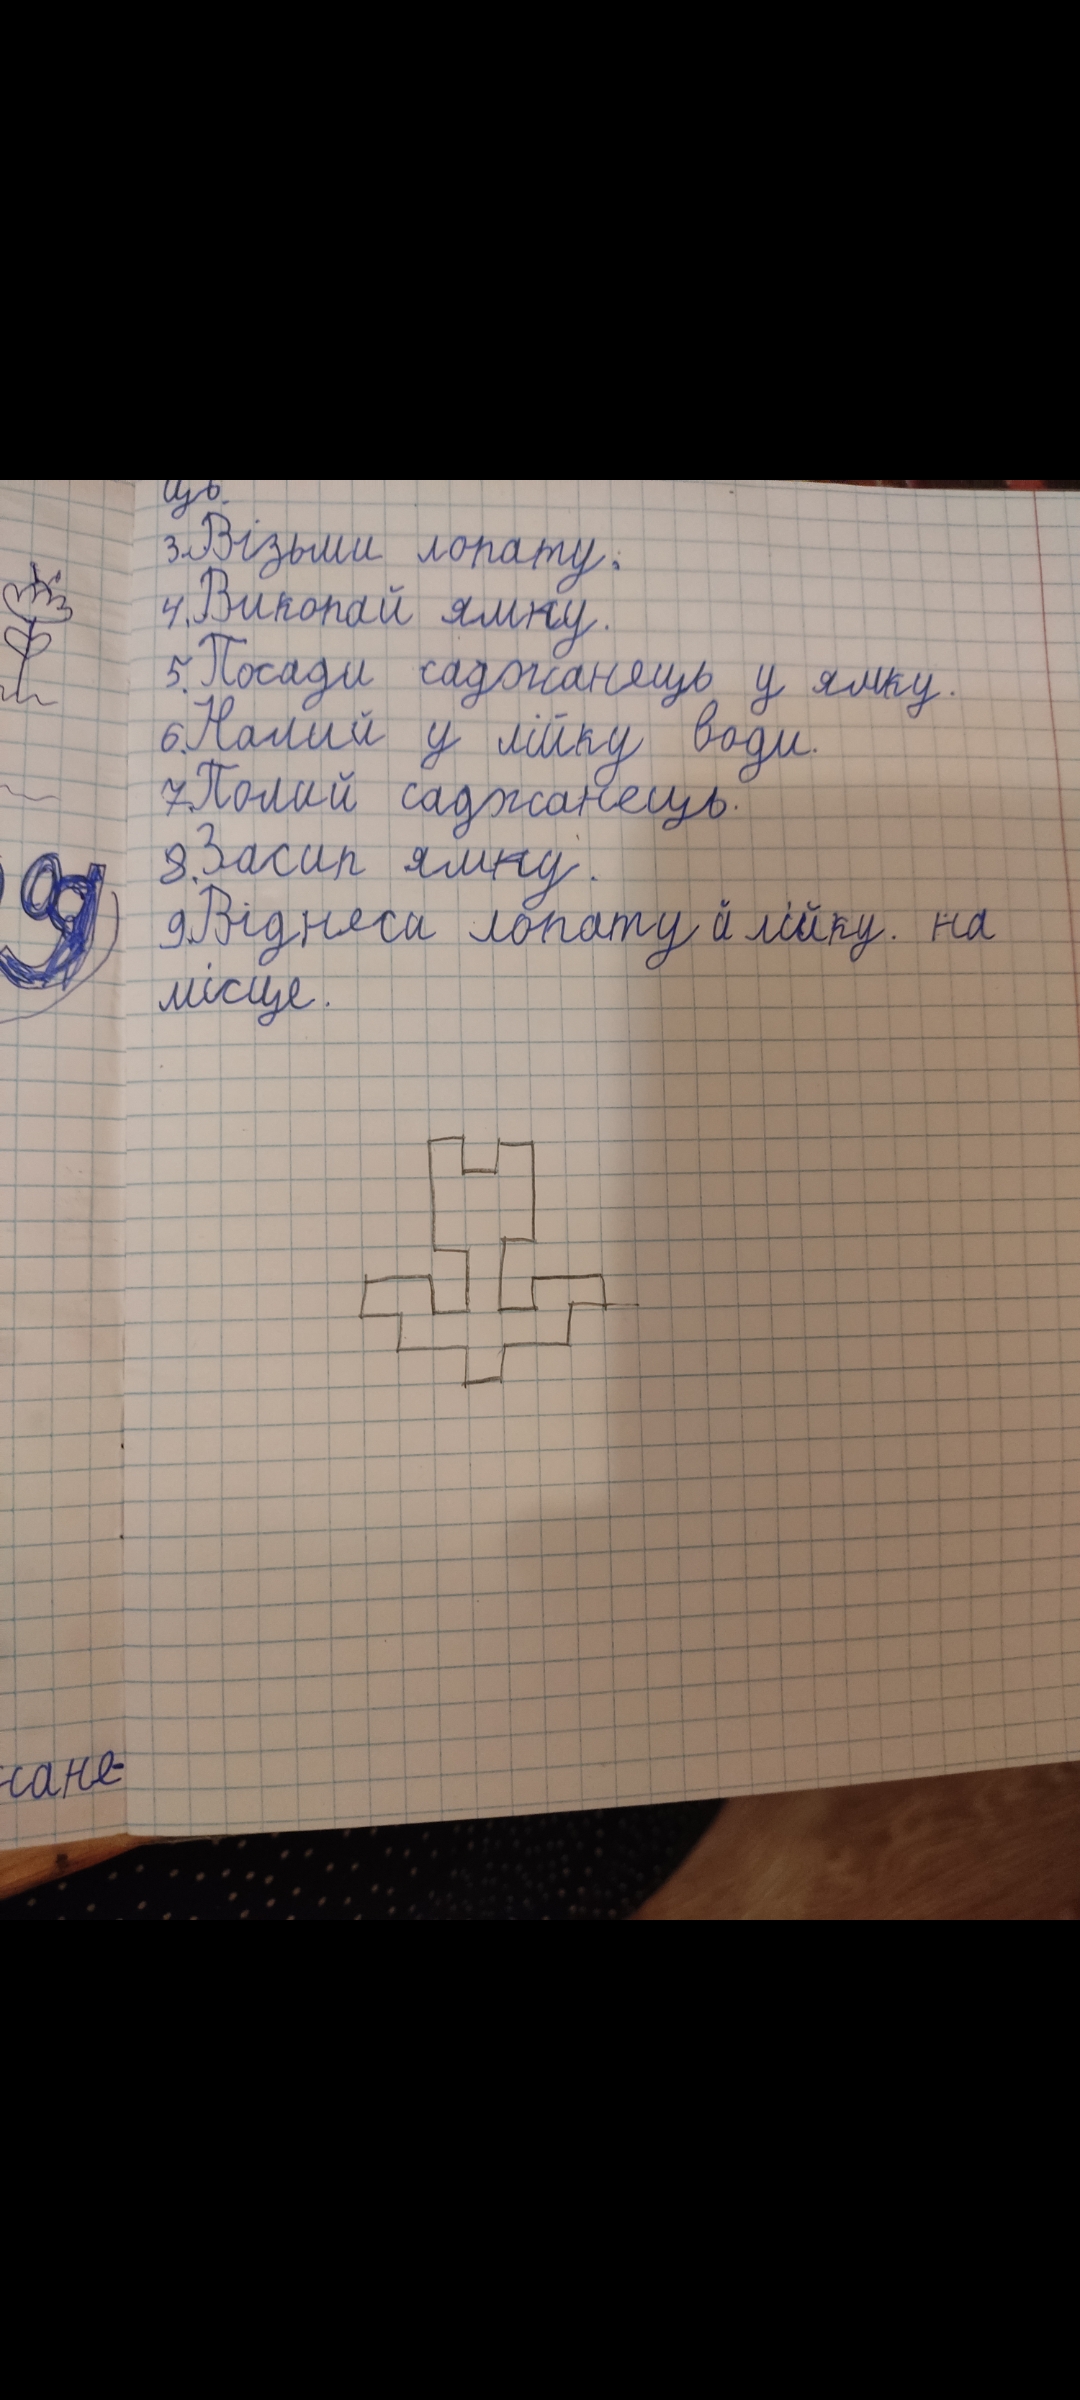 ць.
3. Візьми лопату.
4. Викопай ямку.
5. Посади саджанець у ямку.
6. Налий у лійку води.
7. Полий саджанець.
8. Засип ямку.
9. Віднеса лопату й лійку. на
місце.
9
жане-